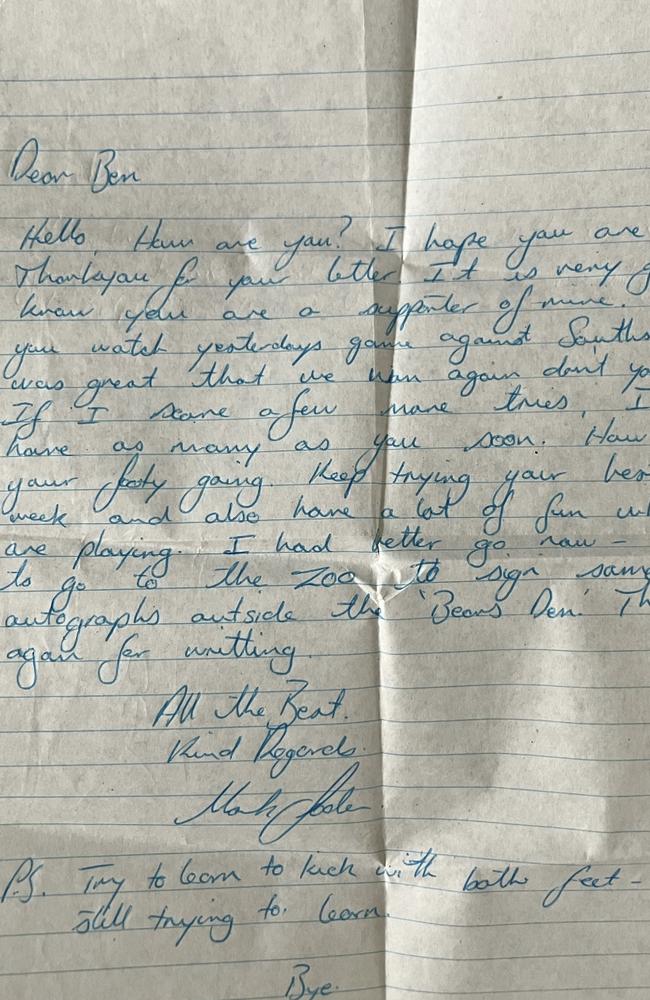 Dear Ben
Hello. How are you? I hope you are
Thankyou for your letter It is very g
know you are a supporter of mine.
you watch yesterdays game against Souths
was great that we won again don't yo
If I score a few more tries, I
have as many as you soon. How
your footy going. Keep trying your bes
week and also have a lot of fun wh
are playing. I had better go now -
to go to the zoo to sign some
autographs outside the 'Bears Den.' Th
again for writting.
All the Best.
Kind Regards.
Mark
P.S. Try to learn to kick with both feet -
still trying to learn.
Bye.